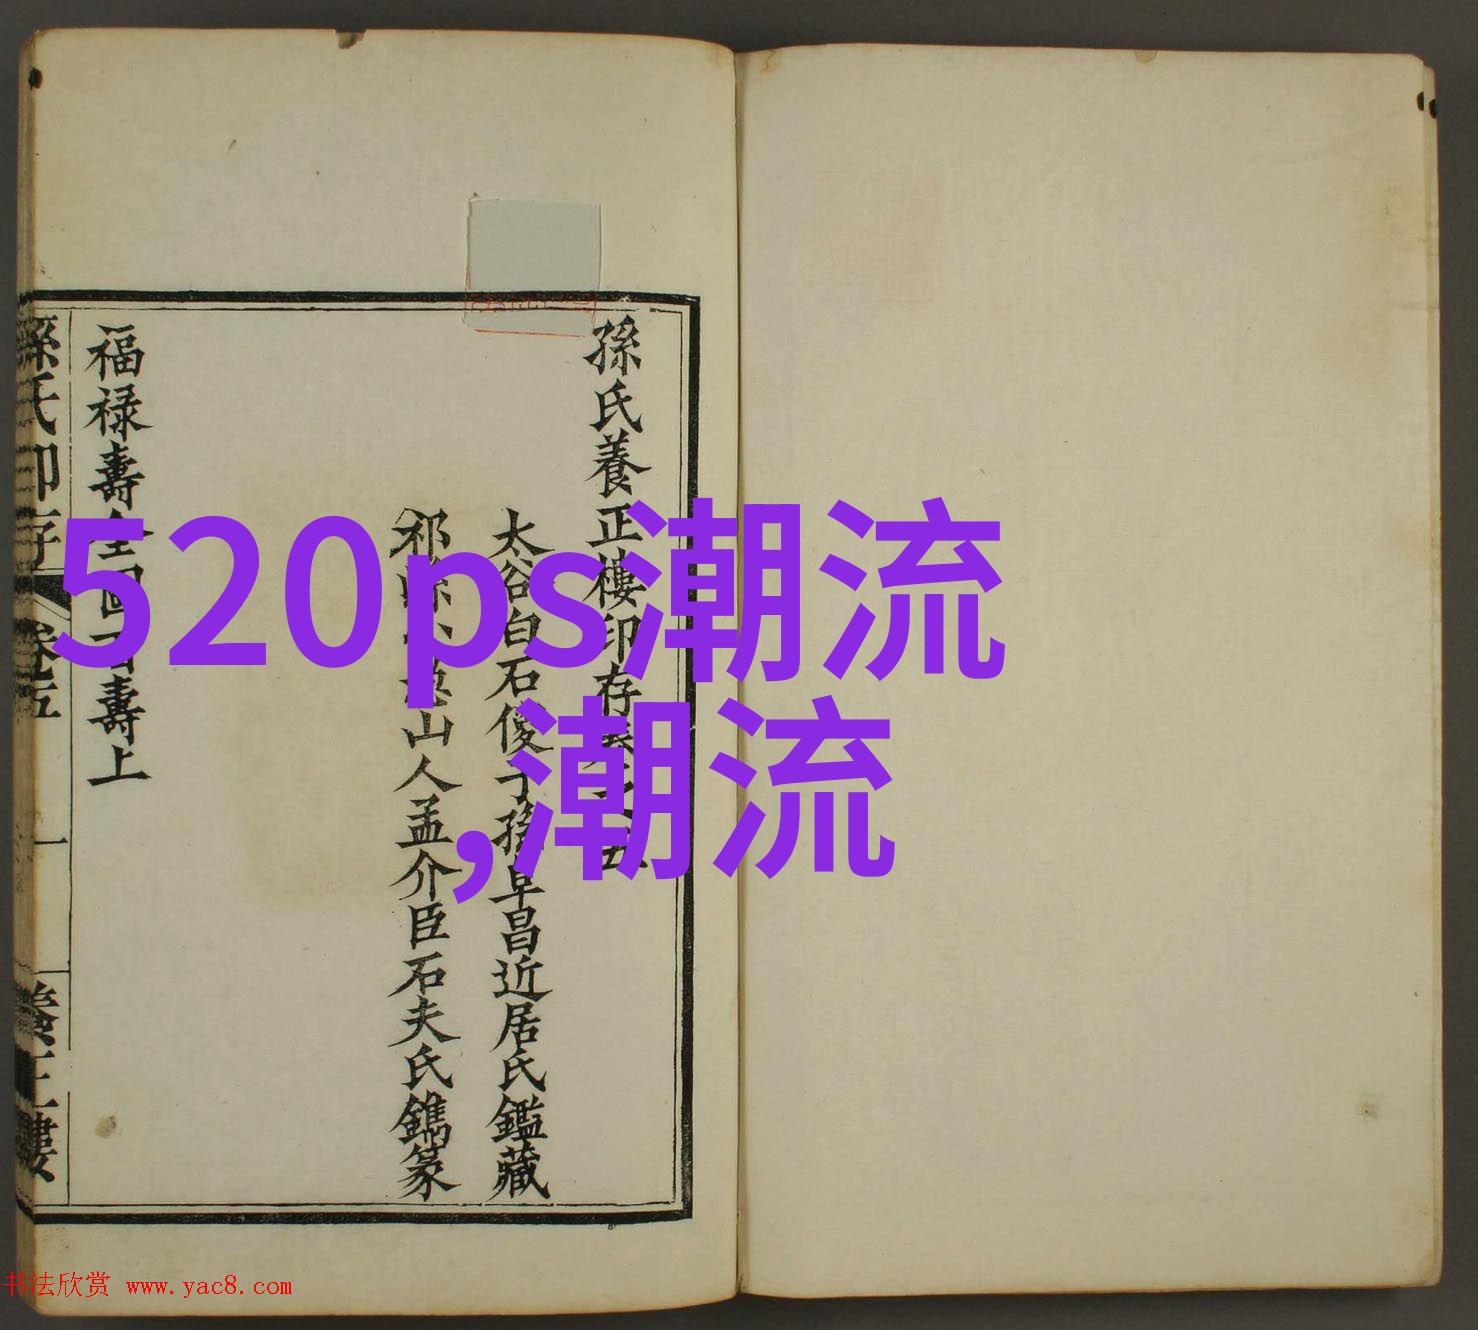 孫氏養正樓印存卷之五
太谷白石傻子孫阜昌近居氏鑑藏
祁縣 山人孟介臣石夫氏鐫篆
福禄壽全圖百壽上
孫氏印存
卷五
一
養正樓
520ps潮流
,潮流
书法欣赏 www.yac8.com